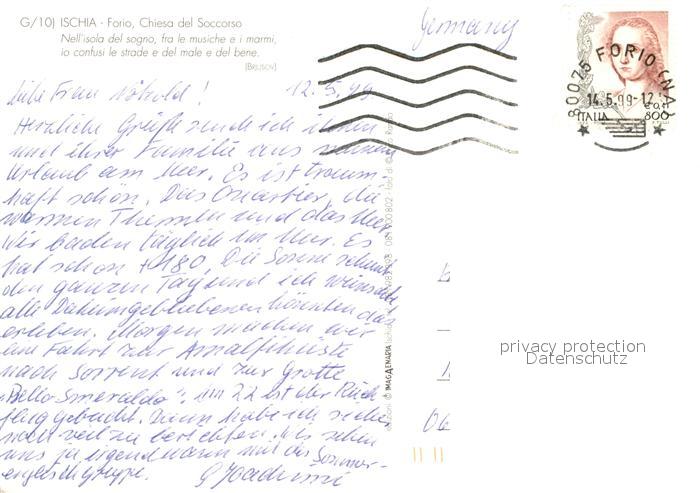 G/10) ISCHIA - Forio, Chiesa del Soccorso
Nell'isola del sogno, fra le musiche e i marmi,
io confusi le strade e del male e del bene.
(BRJUSOV)
Germany
80075 FORIO (NA)
14.5.99-12
ITALIA
800
Liebe Frau ! 12.5.99.
Herzliche Grüße sende ich ihnen
und ihrer Familie aus meinem
Urlaub am Meer. Es ist traum-
haft schön. Das Quartier, die
warmen Thermen und das Meer.
Wir baden täglich im Meer. Es
hat schon +180. Die Sonne scheint
den ganzen Tag und ich wünschte
alle Daheimgebliebenen könnten das
erleben. Morgen machen wir
eine Fahrt zur Amalfiküste
nach Sorrent und zur Grotte
"Bello Smeraldo". Am 22 ist der Rück
flug gebucht. Dann habe ich sicher
noch viel zu berichten. Wir sehen
uns ja irgendwann mit der Sommer-
englischgruppe.
06
IMAGAENARIA
privacy protection
Datenschutz